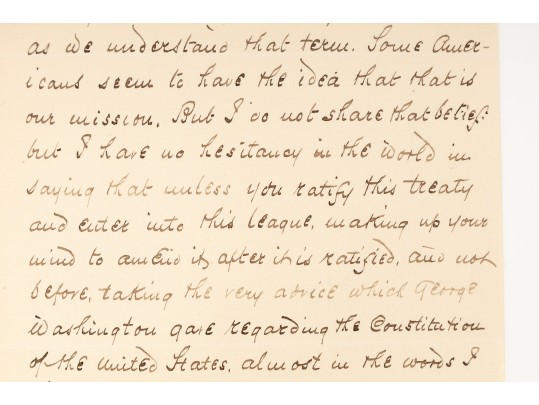 as we understand that term. Some Amer-
icans seem to have the idea that that is
our mission. But I do not share that belief:
but I have no hesitancy in the world in
saying that unless you ratify this treaty
and enter into this league, making up your
mind to amend it, after it is ratified, and not
before, taking the very advice which George
Washington gave regarding the Constitution
of the United States, almost in the words I